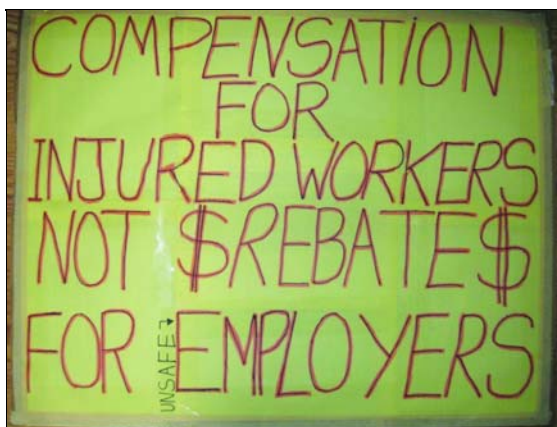 COMPENSATION
FOR
INJURED WORKERS
NOT $REBATE$
FOR UNSAFE→ EMPLOYERS